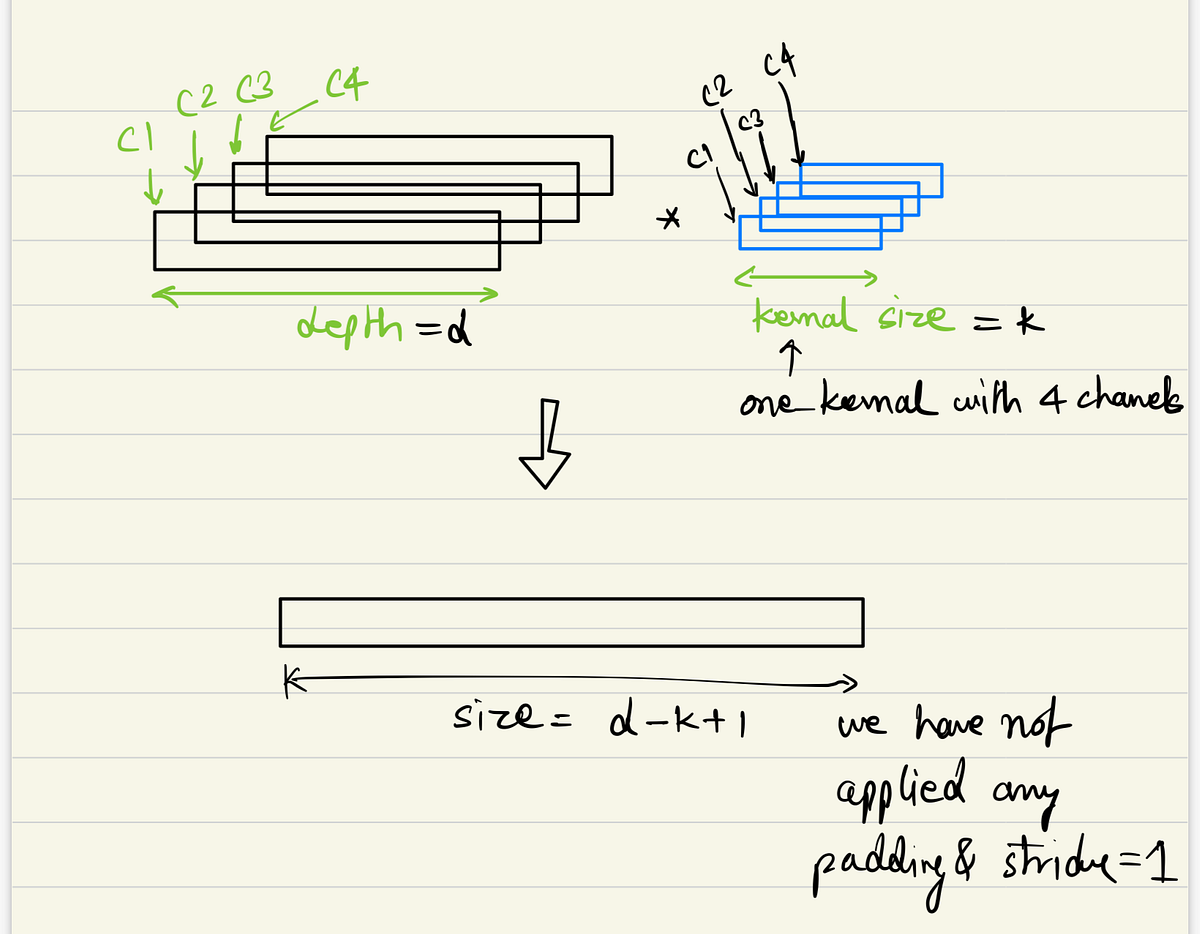 C1 C2 C3 C4
C1 C2 C3 C4
*
depth = d
kernal size = k
one kernal with 4 chanels
size = d-k+1
we have not
applied any
padding & stride=1